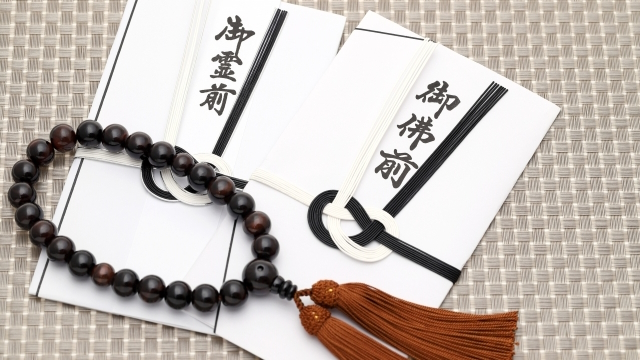 御霊前
御佛前